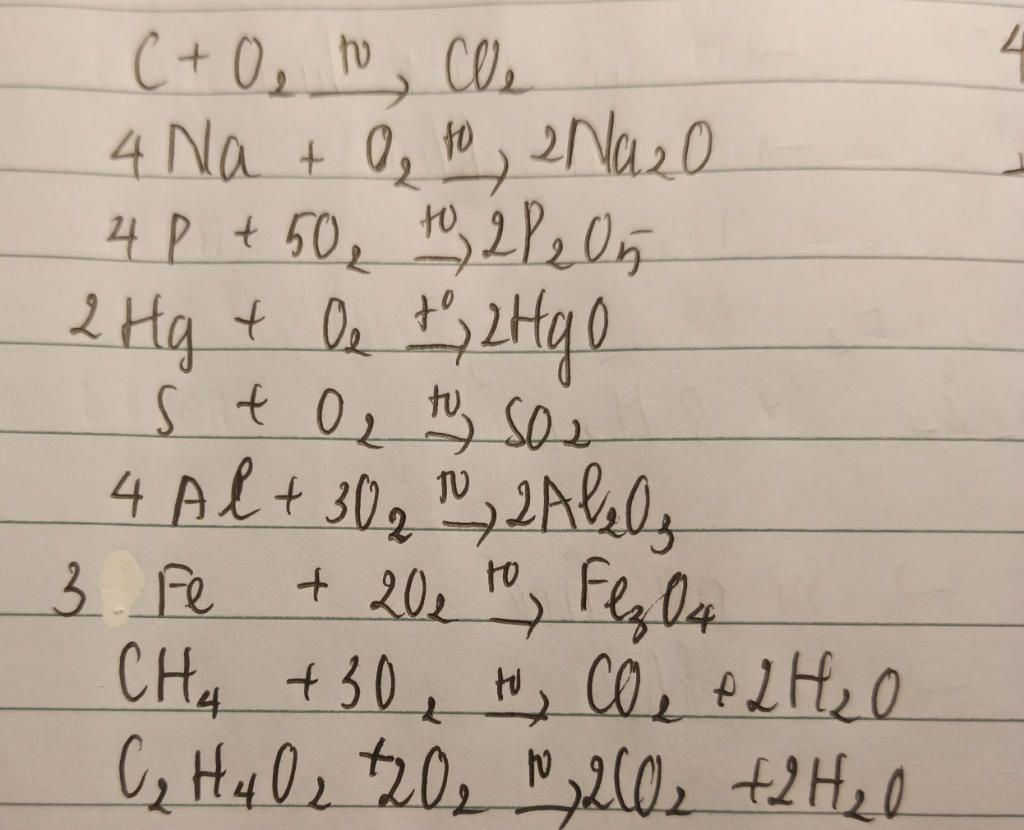 C + O₂ —t°→ CO₂
4 Na + O₂ —t°→ 2Na₂O
4 P + 5O₂ —t°→ 2P₂O₅
2 Hg + O₂ —t°→ 2HgO
S + O₂ —t°→ SO₂
4 Al + 3O₂ —t°→ 2Al₂O₃
3 Fe + 2O₂ —t°→ Fe₃O₄
CH₄ + 3O₂ —t°→ CO₂ + 2H₂O
C₂H₄O₂ + 2O₂ —t°→ 2CO₂ + 2H₂O